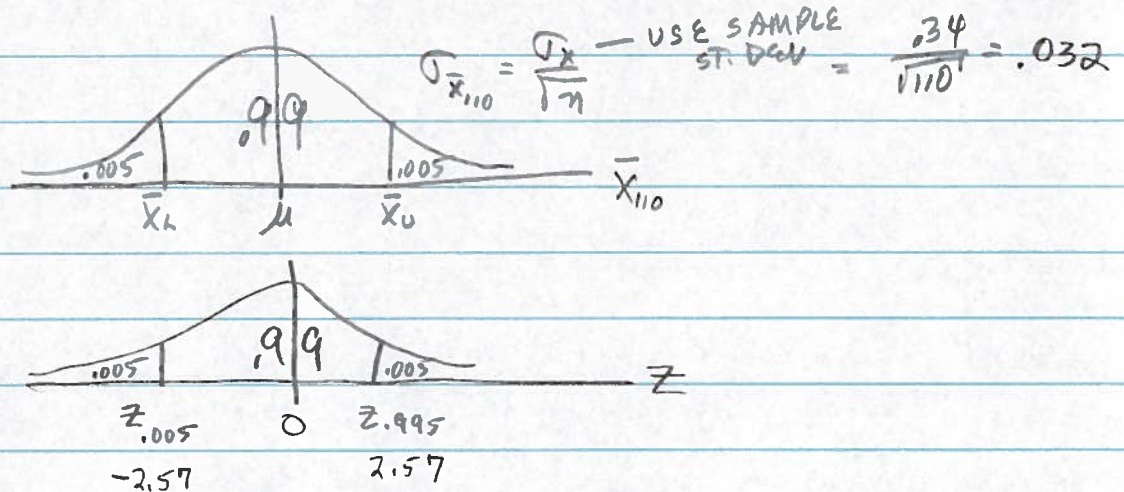 σx̄110 = σx/√n — USE SAMPLE ST. DEV = .34/√110 = .032
.99
.005 .005
x̄L μ x̄U x̄110
.99
.005 .005 Z
Z.005 0 Z.995
-2.57 2.57